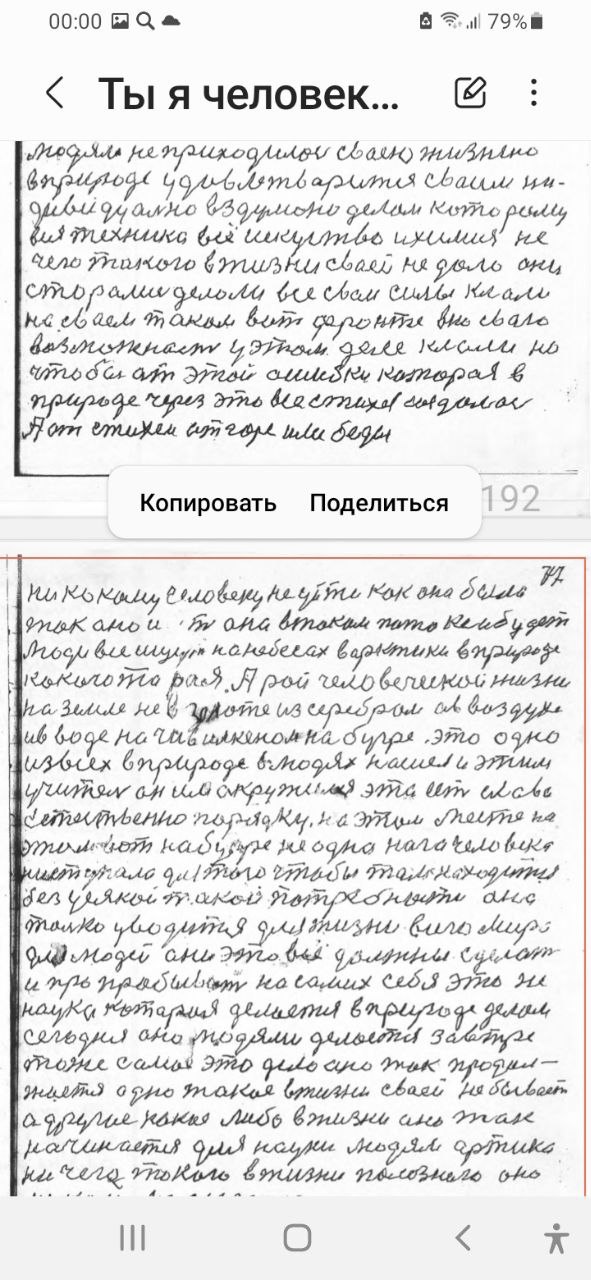 00:00 79%
Ты я человек...
людям не приходилос сваею жизнено
в природе удовлетварится сваим ин-
дивидуално вздумоно делам котораму
вся техника всё искуство и химия не
чего такого в жизни сваей не дало они
сторалис делоли все сваи силы клали
на сваем таком вот фронте вю сваю
возможност у этом деле клали но
чтобы от этой ошибки которая в
природе через это все стихея создалас
А от стихеи от горе или беды
Копировать Поделиться
192
77
ни кокому человеку не уйти как она была
так оно и она в таком патоке и будет
Люди все ищут на небесах в арктики в природе
кокого та рая. А рой человеческой жизни
на земле не в золоте из серебром а в воздухе
и в воде на чивилкеном на бугре. это одно
из всех в природе в людях нашел и этим
учител он им окружился эта ест слава
естественно порядку. на этом месте на
этом вот на бугре не одна нага человека
ниступала для того чтобы там находится
без усякой такой потребности она
толко уводится для жизни всего мира
для людей ани это всё должны сделат
и про пробыват на самих себя это же
наука которая делается в природе делам
сегодня оно людями делается завтре
тоже самое это дело оно так продал-
жается одно такое в жизни сваей не бывает
а другие какое либо в жизни оно так
начинается для науки людям артика
ни чего такого в жизни полезного оно